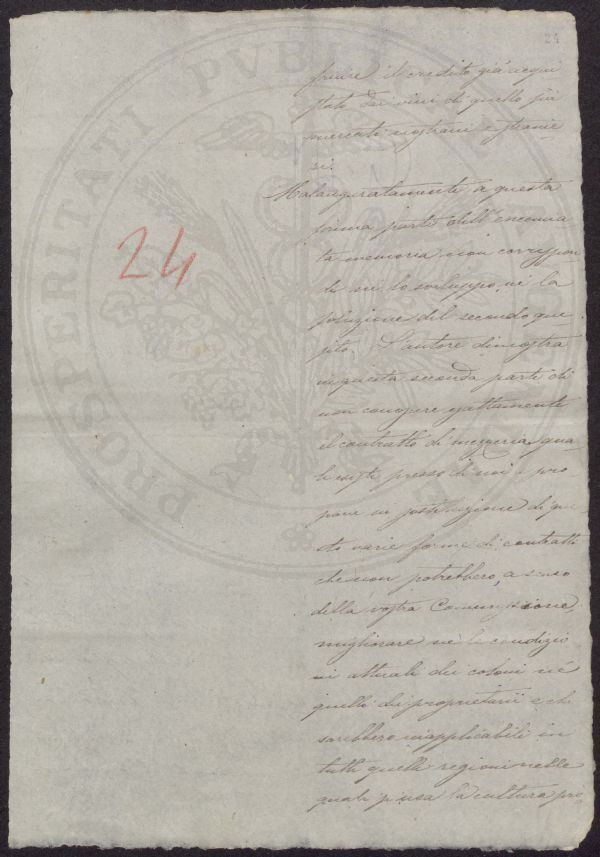 24
fruire il credito già acqui
stato dai vini di quelle sui
mercati nostrani e stranie
ri.
Malauguratamente a questa
prima parte dell'encomia
ta memoria non corrispon
de nè lo sviluppo, nè la
posizione del secondo que
sito. L'autore dimostra
in questa seconda parte di
non conoscere esattamente
il contratto di mezzeria qua
le esiste presso di noi e pro
pone in sostituzione di que
sto varie forme di contratti
che non potrebbero, a senso
della vostra Commissione,
migliorare nè le condizio
ni attuali dei coloni nè
quelle dei proprietarii e che
sarebbero inapplicabili in
tutte quelle regioni nelle
quali la cultura pro
24
PROSPERITATI PVBLICAE